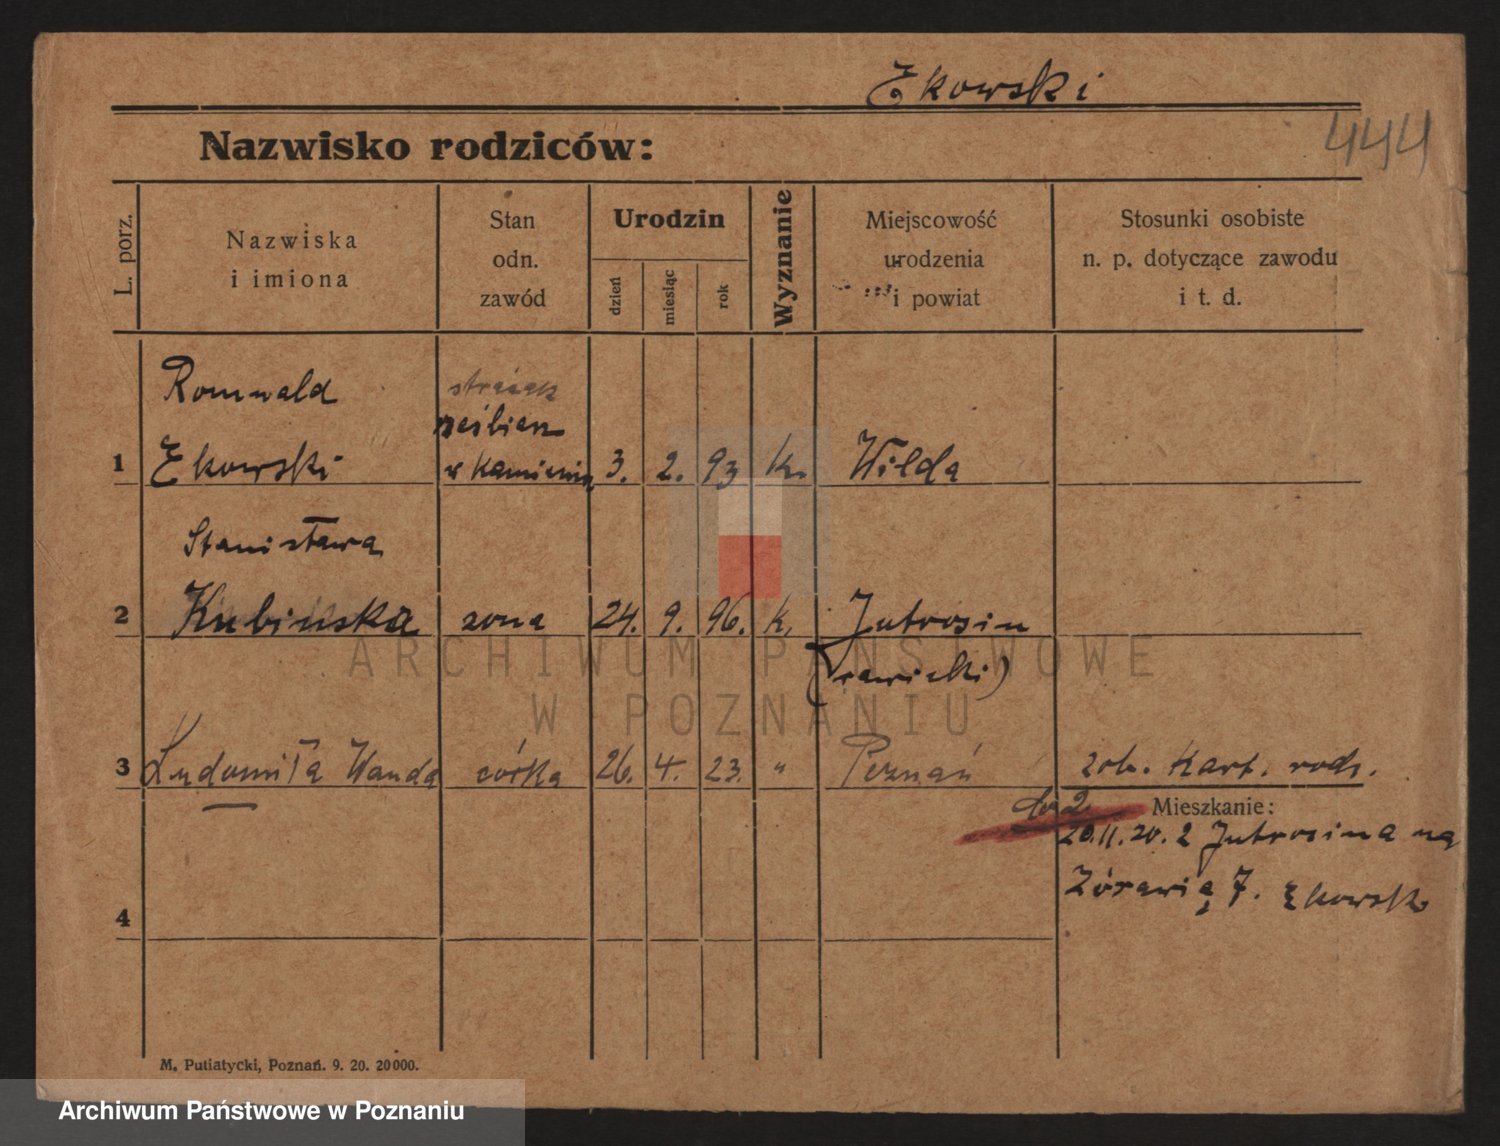 Ekowski
444
Nazwisko rodziców:
L. porz.
Nazwiska
i imiona
Stan
odn.
zawód
Urodzin
dzień
miesiąc
rok
Wyznanie
Miejscowość
urodzenia
i powiat
Stosunki osobiste
n. p. dotyczące zawodu
i t. d.
Romuald
strażak
rzeźbiarz
1 Ekowski w kamieniu 3. 2. 93 k. Wilda
Stanisława
2 Kubińska żona 24. 9. 96. k. Jutrosin
(rawicki)
3 Ludomiła Wanda córka 26. 4. 23. " Poznań zob. Kart. rodz.
Mieszkanie:
20.11.20. z Jutrosina na
Żórawią 7. Ekowski
4
M. Putiatycki, Poznań. 9. 20. 20000.
ARCHIWUM PAŃSTWOWE
W POZNANIU
Archiwum Państwowe w Poznaniu